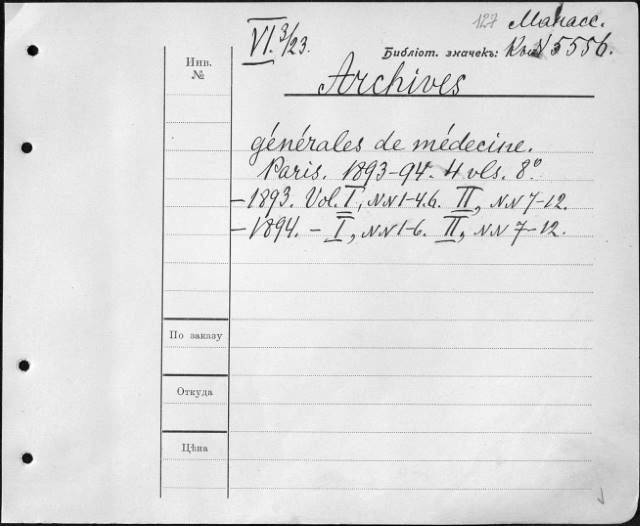 127 Манасс.
VI. 3/23.
Библіот. значекъ: № 5556.
Инв.
№
Archives
générales de médecine.
Paris. 1893-94. 4 vls. 8°
- 1893. Vol. I, NN 1-4.6. II, NN 7-12.
- 1894. - I, NN 1-6. II, NN 7-12.
По заказу
Откуда
Цѣна